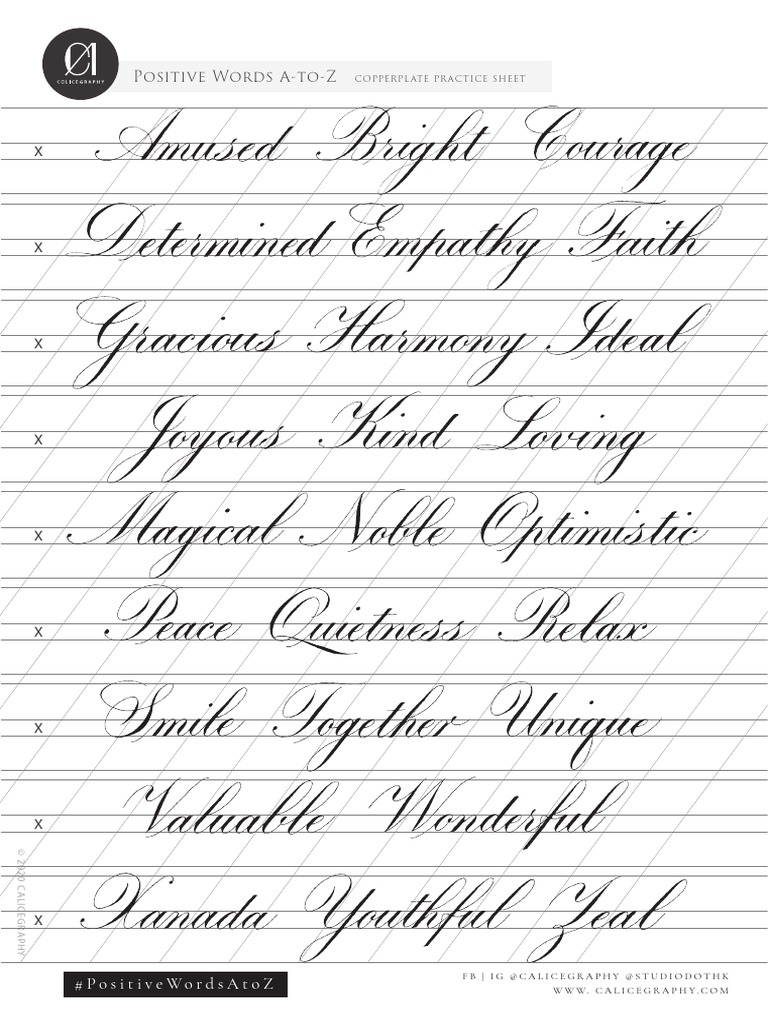 CALICEGRAPHY
POSITIVE WORDS A-TO-Z COPPERPLATE PRACTICE SHEET
x Amused Bright Courage
x Determined Empathy Faith
x Gracious Harmony Ideal
x Joyous Kind Loving
x Magical Noble Optimistic
x Peace Quietness Relax
x Smile Together Unique
x Valuable Wonderful
x Xanada Youthful Zeal
© 2020 CALICEGRAPHY
#PositiveWordsAtoZ
FB | IG @CALICEGRAPHY @STUDIODOTHK
WWW. CALICEGRAPHY.COM